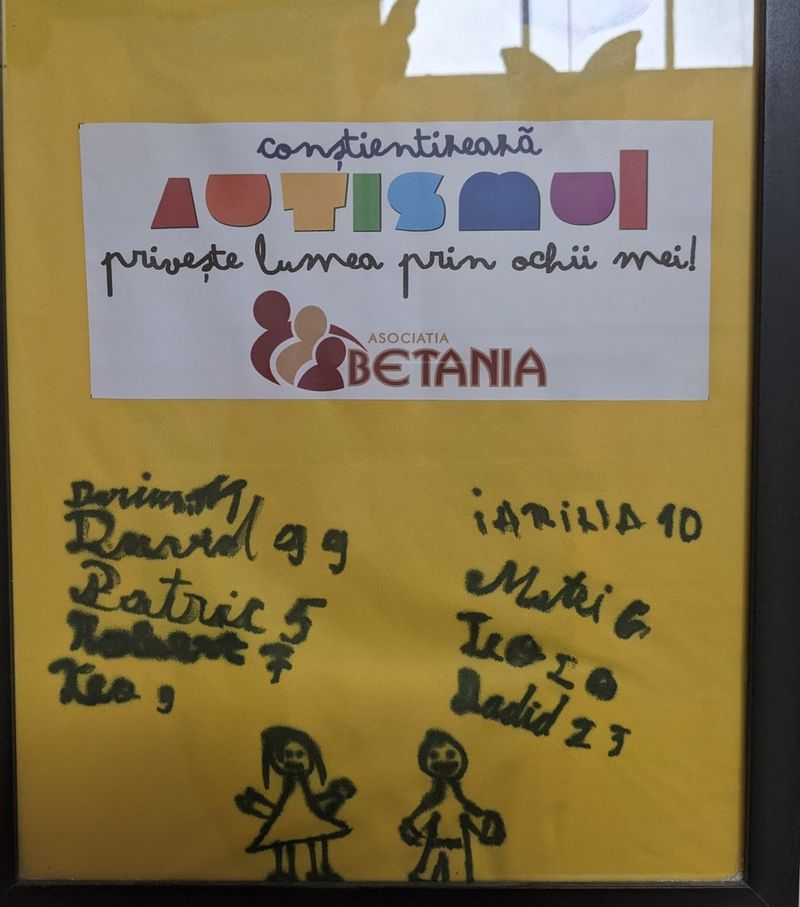 conștientizează
AUTISMUL
privește lumea prin ochii mei!
ASOCIATIA
BETANIA
David 99
Patric 5
Robert 7
Teo 9
Matei 6
Teo 10
David 23